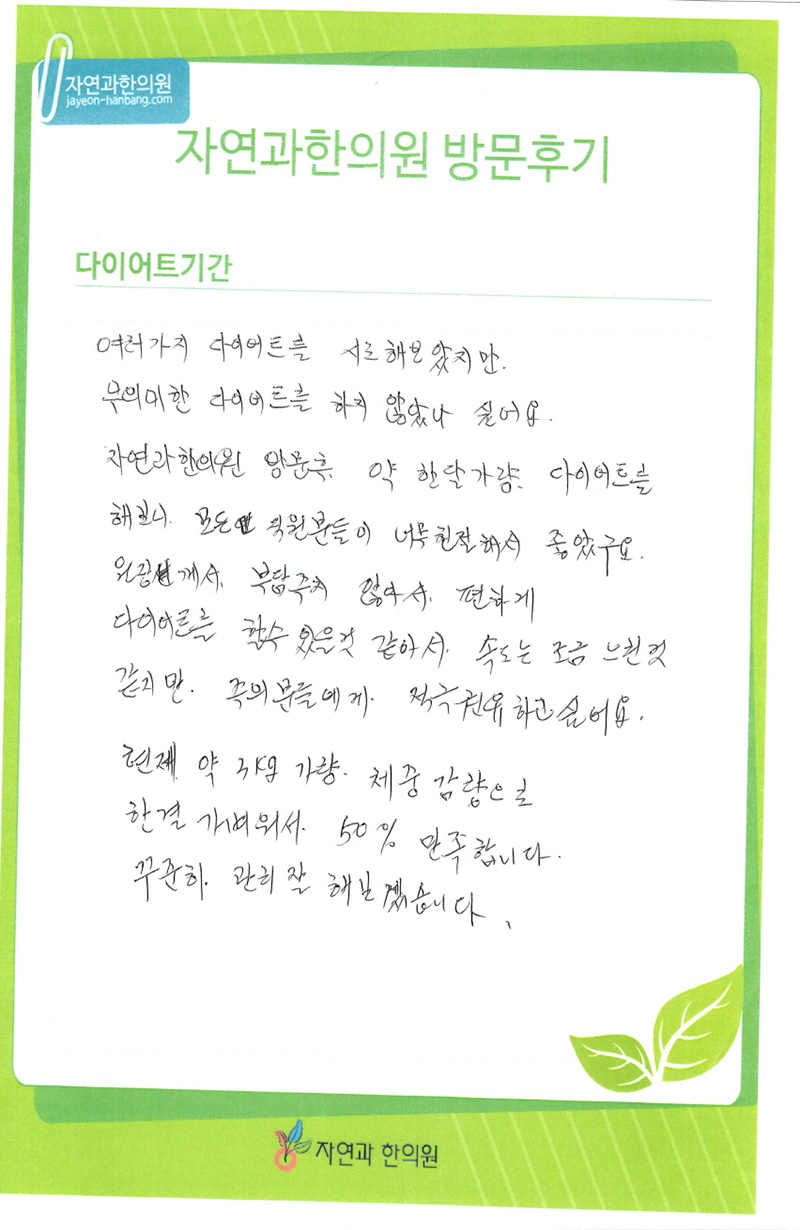 자연과한의원
jayeon-hanbang.com
자연과한의원 방문후기
다이어트기간
여러가지 다이어트를 시도해보았지만.
무의미한 다이어트를 하지 않았나 싶어요.
자연과한의원 방문후, 약 한달가량. 다이어트를
해보니. 모든 직원분들이 너무친절해서 좋았구요.
원장님께서, 부담주지 않아서, 편하게
다이어트를 할수 있을것 같아서. 속도는 조금 느린것
같지만. 주의분들에게. 적극권유하고싶어요.
현재 약 3kg 가량. 체중 감량으로
한결 가벼워서. 50% 만족합니다.
꾸준히. 관리 잘 해보겠습니다.
자연과 한의원